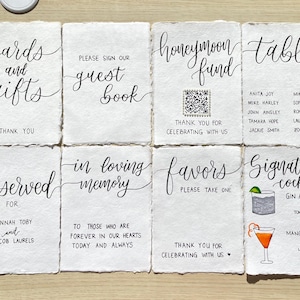 cards
and
gifts
THANK YOU
PLEASE SIGN OUR
guest
book
honeymoon
fund
THANK YOU FOR
CELEBRATING WITH US
tabl
ANITA JOY
MIKE HARLEY
JOHN AINSLEY
TAMARA HOPE
JACKIE SMITH
served
FOR
NNAH TOBY
and
COB LAURELS
in loving
memory
TO THOSE WHO ARE
FOREVER IN OUR HEARTS
TODAY AND ALWAYS
favors
PLEASE TAKE ONE
THANK YOU FOR
CELEBRATING WITH US ♥
Signat
coc
GIN
MAN